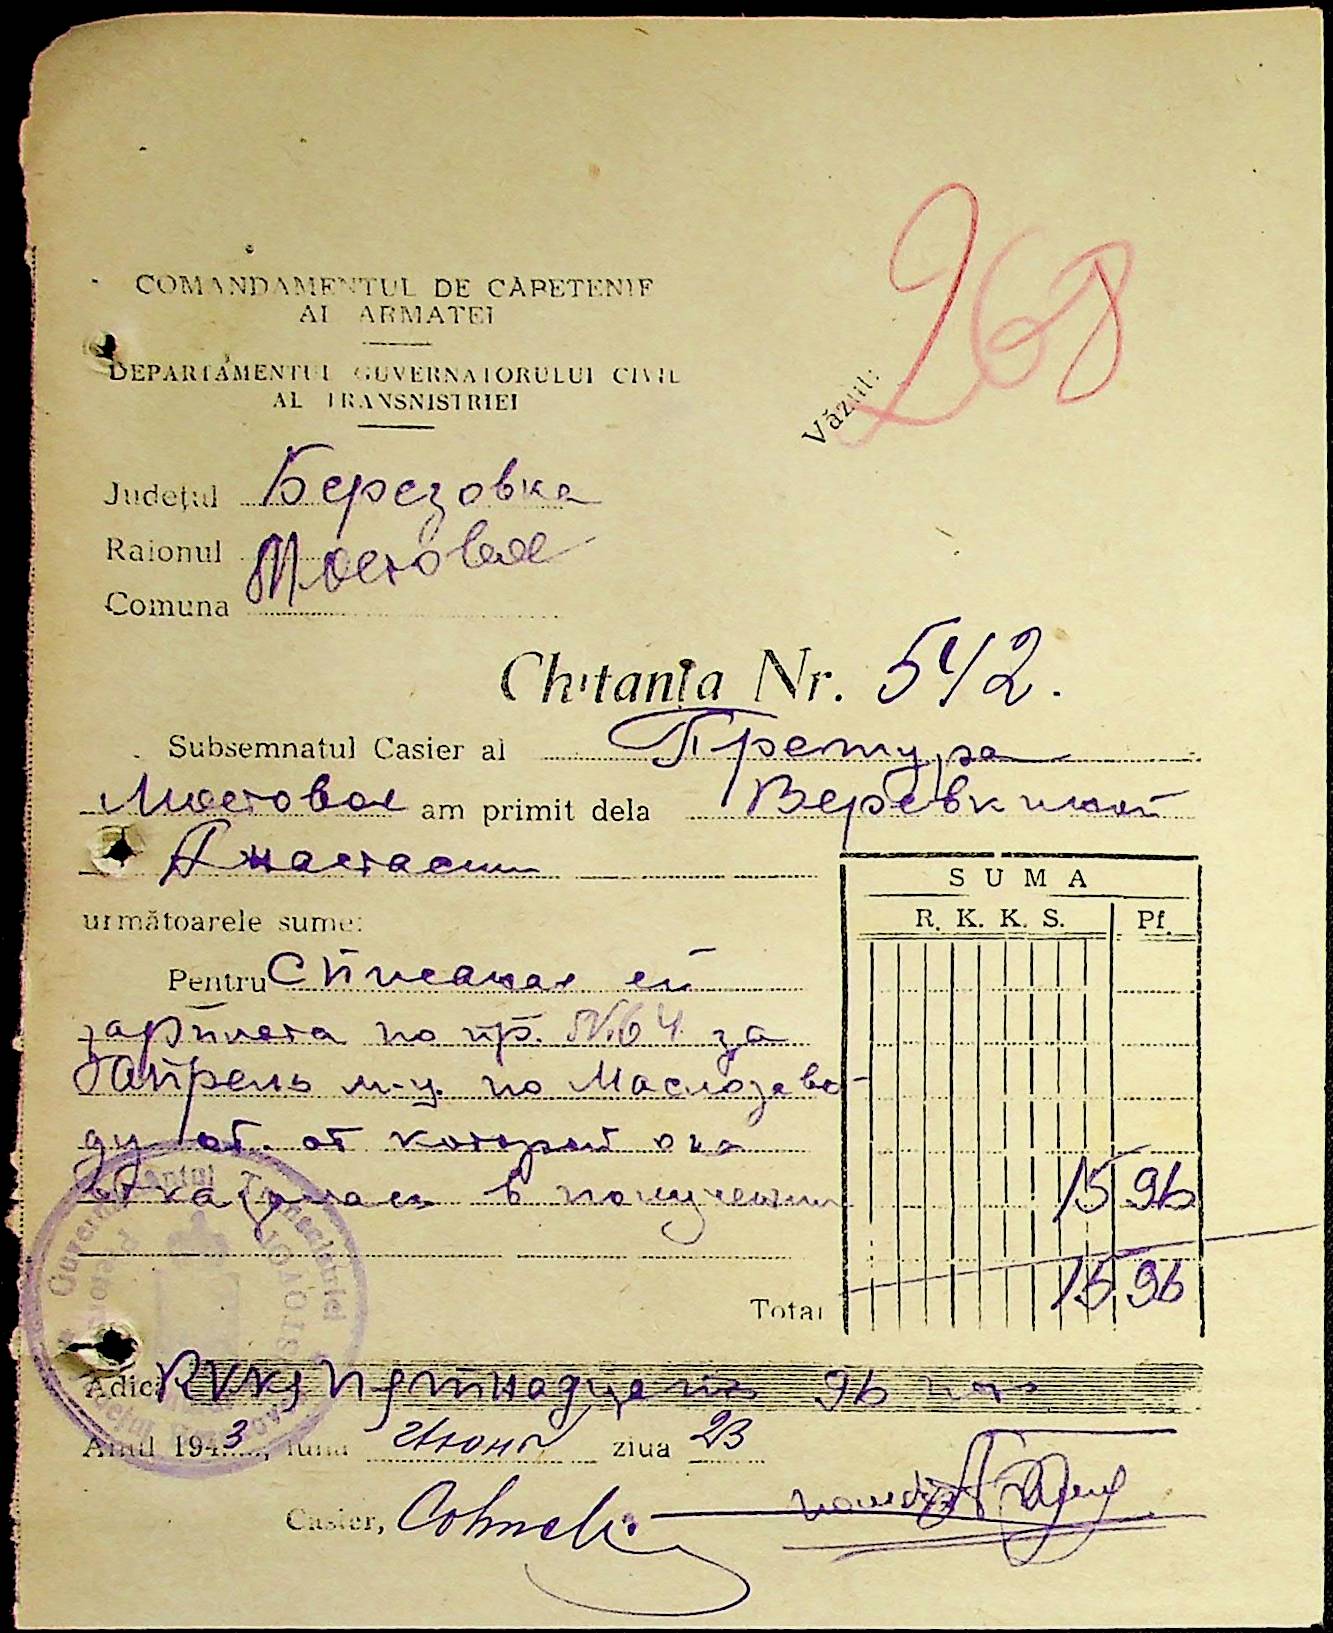 268
COMANDAMENTUL DE CĂPETENIE
AL ARMATEI
DEPARTAMENTUL GUVERNATORULUI CIVIL
AL TRANSNISTRIEI
Văzut:
Județul Березовка
Raionul Мостовое
Comuna
Chitanța Nr. 542.
Subsemnatul Casier al Претура
Мостовое am primit dela Веревкиной
Анастасии
SUMA
următoarele sume:
R. K. K. S. Pf.
Pentru Списаная ей
зарплата по пр. №64 за
Апрель м-ц. по Маслозаво-
ду от которой она
отказалась в получении 15 96
Total 15 96
Adică RKKS Пятнадцать 96 пф
Anul 1943, luna Июнь ziua 23
Casier,
Guvernământul Transnistriei